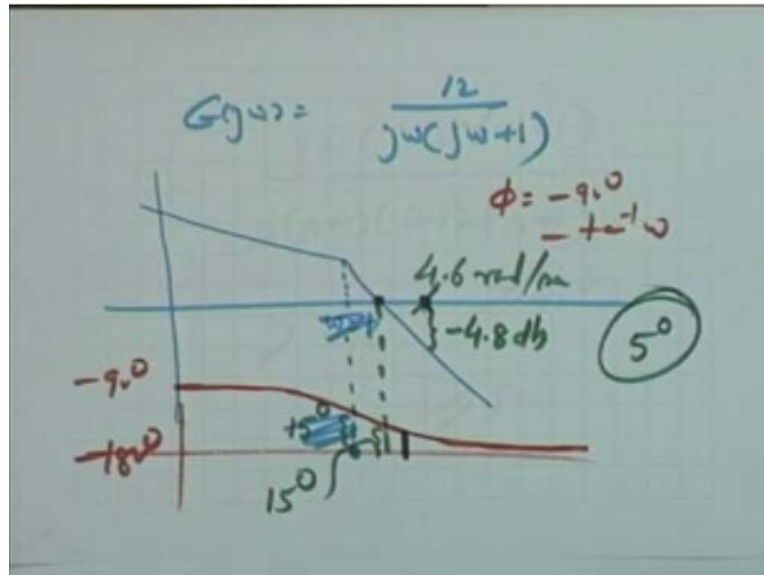 G(jω) = 12 / jω(jω+1)
φ = -90°
- tan⁻¹ ω
4.6 rad/sec
-4.8 db
5°
-90°
+5°
-180°
15°